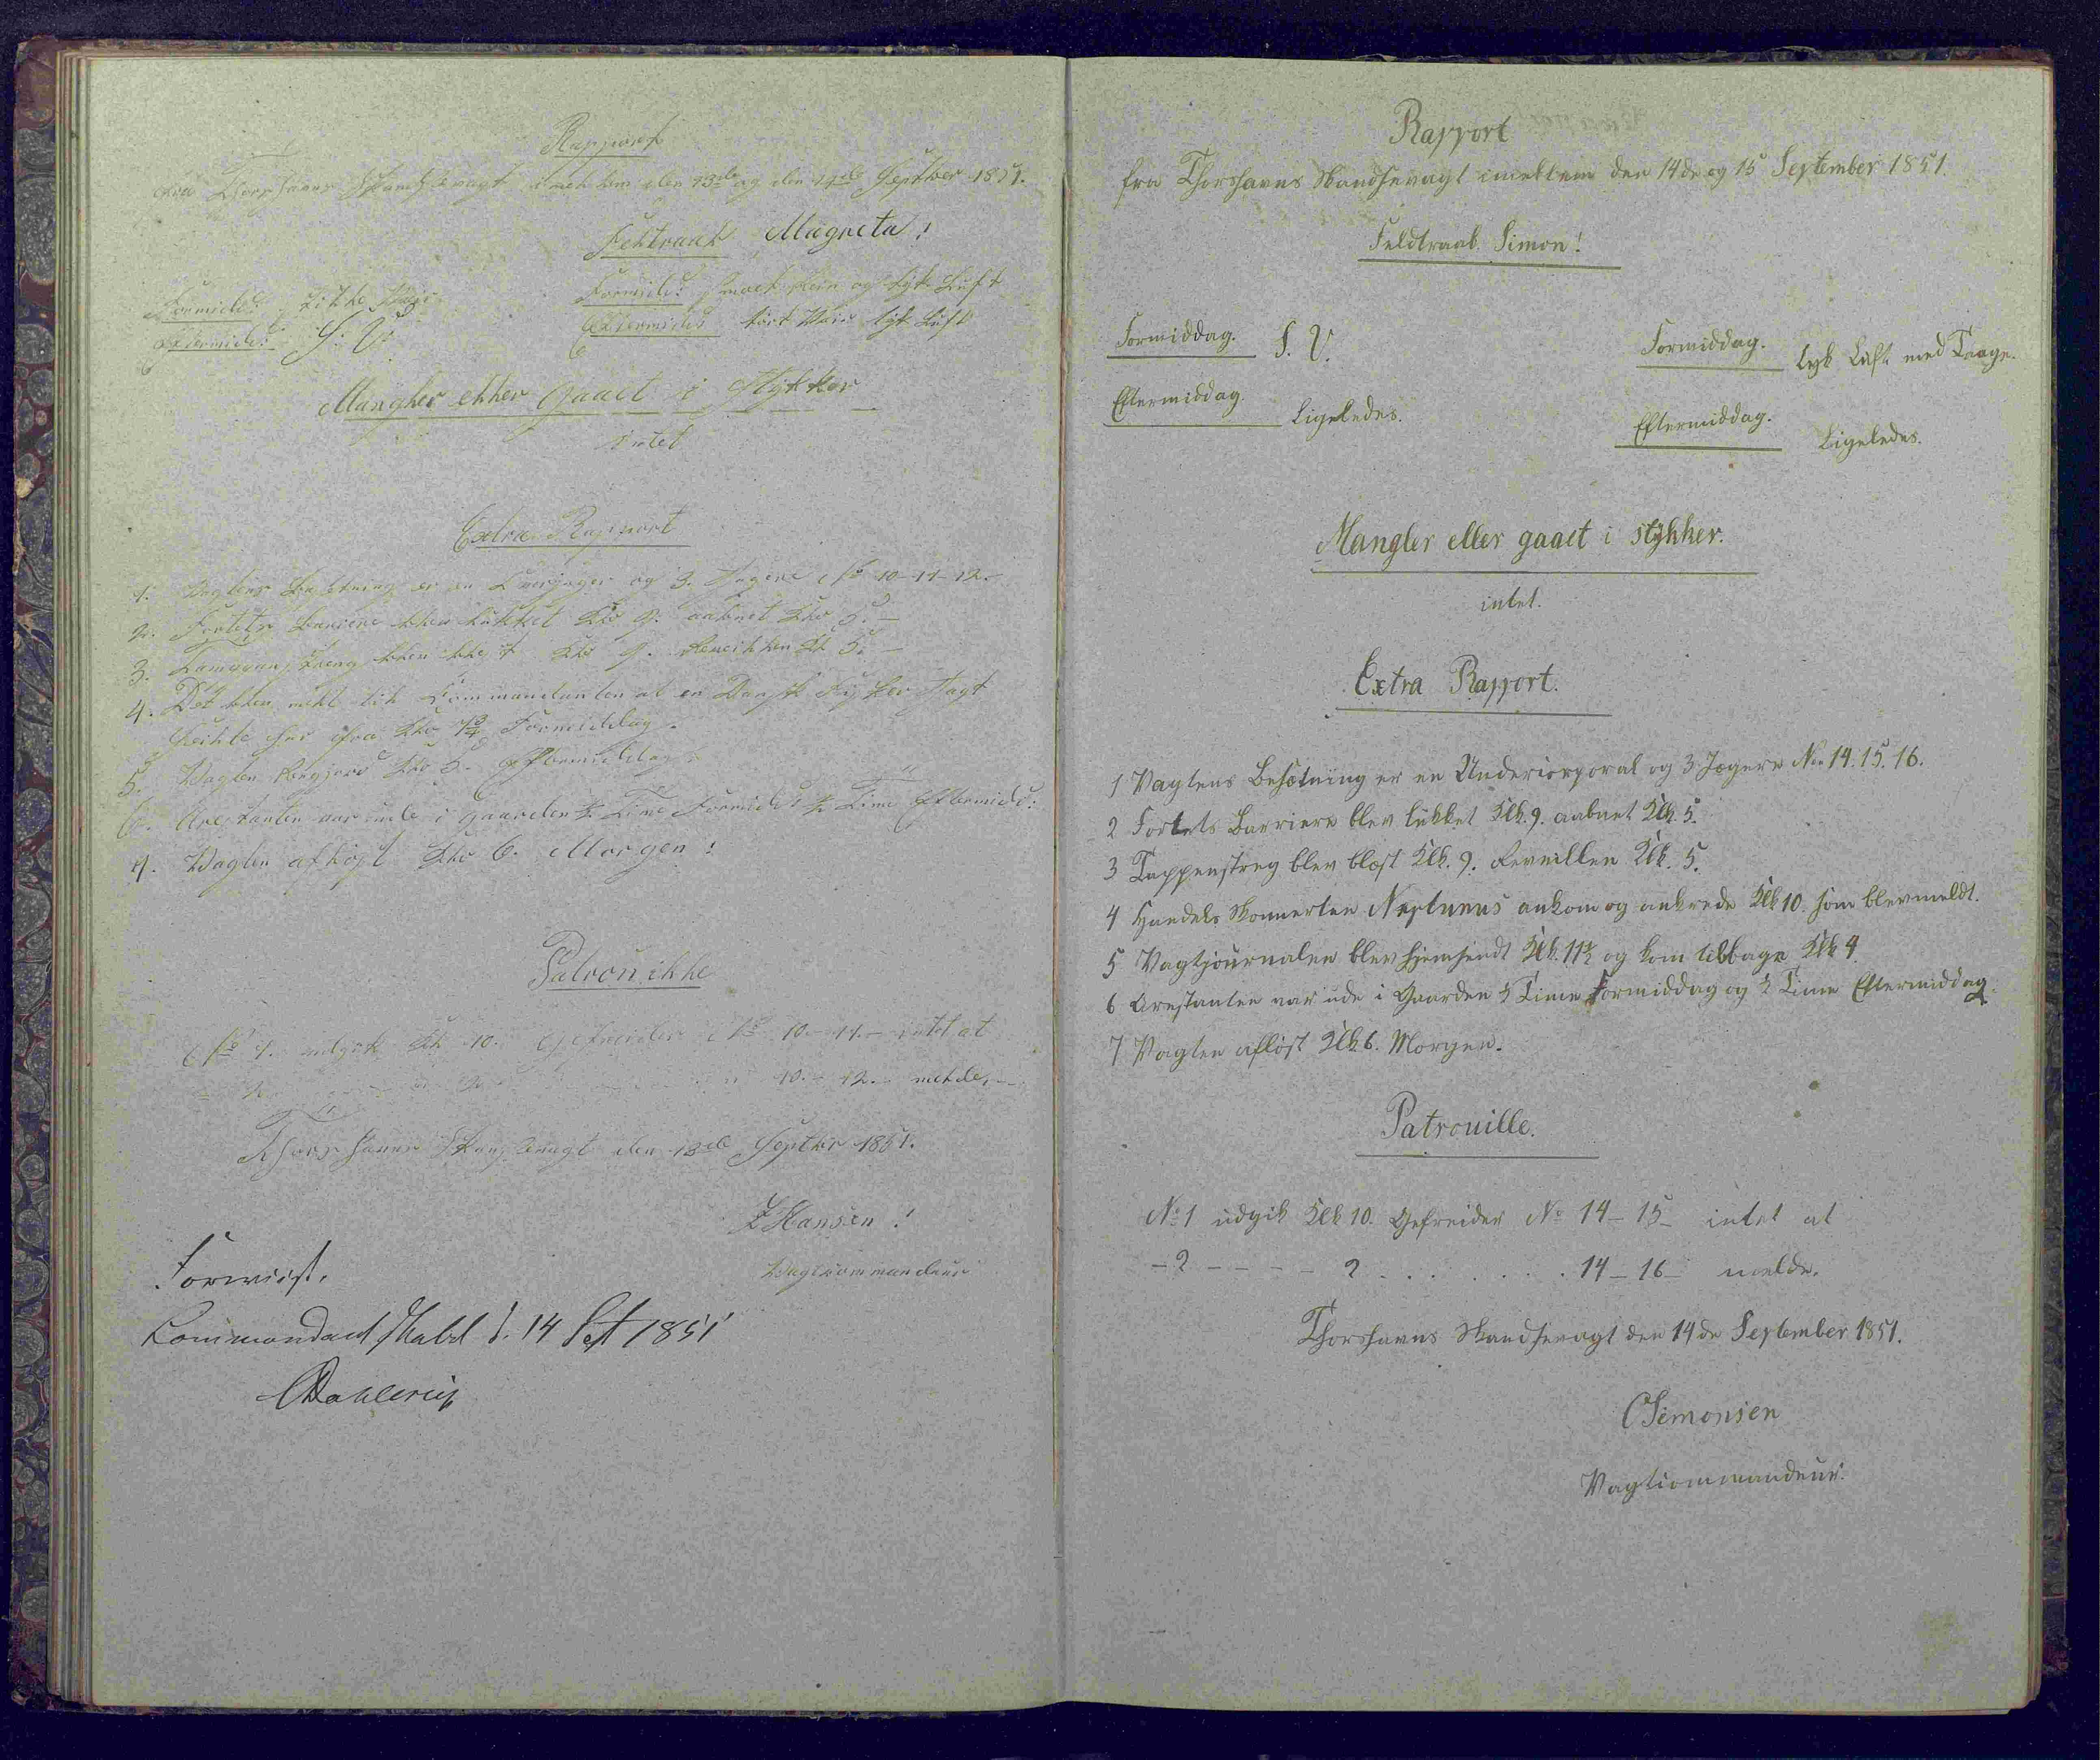 Rapport
fra Thorshauns Skandsevagt imellem den 13de og den 14de Septbr 1851.
Feltraab Magreta!
Formidd: Stille
Eftermidd: S. V.
Formidd: smaat Rein og tyk Luft
Eftermidd tørt Veir tyk Luft
Mangler eller gaaet i Stykker
intet
Extra Rapport
1. Vagtens Besetning er en Overjæger og 3. Jægere No 10-11-12.
2. Fortets Barriere blev lukket Klo 9. aabnet Klo 5.
3. Tampaanstreng blev blest Klo 9. Reveillen Kl 5.
4. Det blev melt til Kommandanten at en Dansk Fisker Jagt
seilte her fra Klo 7¾ Formiddag.
5. Vagten Klo 5. Eftermiddag.
6. Arestanten var ude i gaarden ½ Time Formidd: ½ Time Eftermidd:
7. Vagten afløst Klo 6. Morgen!
Patronille
No 1. udgik Kl 10. Gefreider No 10.-11.- intet at
= 2 2 10.-12.- melde.
Thorshauns Skansevagt den 13de Septbr 1851.
Hansen!
Vagtkommandeur
Forviist.
Commandantskabet d. 14 Sept 1851
CDahlerup
Rapport
fra Thorshavns Skandsevagt imellem den 14de og 15 September 1851.
Feldtraab. Simon!
Formiddag. S. V.
Formiddag. tyk Luft med Taage.
Eftermiddag. Ligeledes.
Eftermiddag. Ligeledes.
Mangler eller gaaet i stykker.
intet.
Extra Rapport.
1 Vagtens Besætning er en Undercorporal og 3 Jægere Nr 14. 15. 16.
2 Fortets Barriere blev lukket Klk. 9. aabnet Klk. 5.
3 Tappenstreg blev blæst Klk. 9. Reveillen Klk. 5.
4 Handels Skonnerten Neptunus ankom og ankrede Klk 10. som blev meldt.
5 Vagtjournalen blev hjemsendt Klk. 11½ og kom tilbage Klk 4.
6 Arestanten var ude i Gaarden ½ Time Formiddag og ½ Time Eftermiddag.
7 Vagten afløst Klk 6. Morgen.
Patrouille.
No 1 udgik Klk 10. Gefreider No 14-15- intet at
- 2 - - - - 2 . . . . . . . 14-16- melde.
Thorshavns Skandsevagt den 14de September 1851.
CSimonsen
Vagtcommandeur.